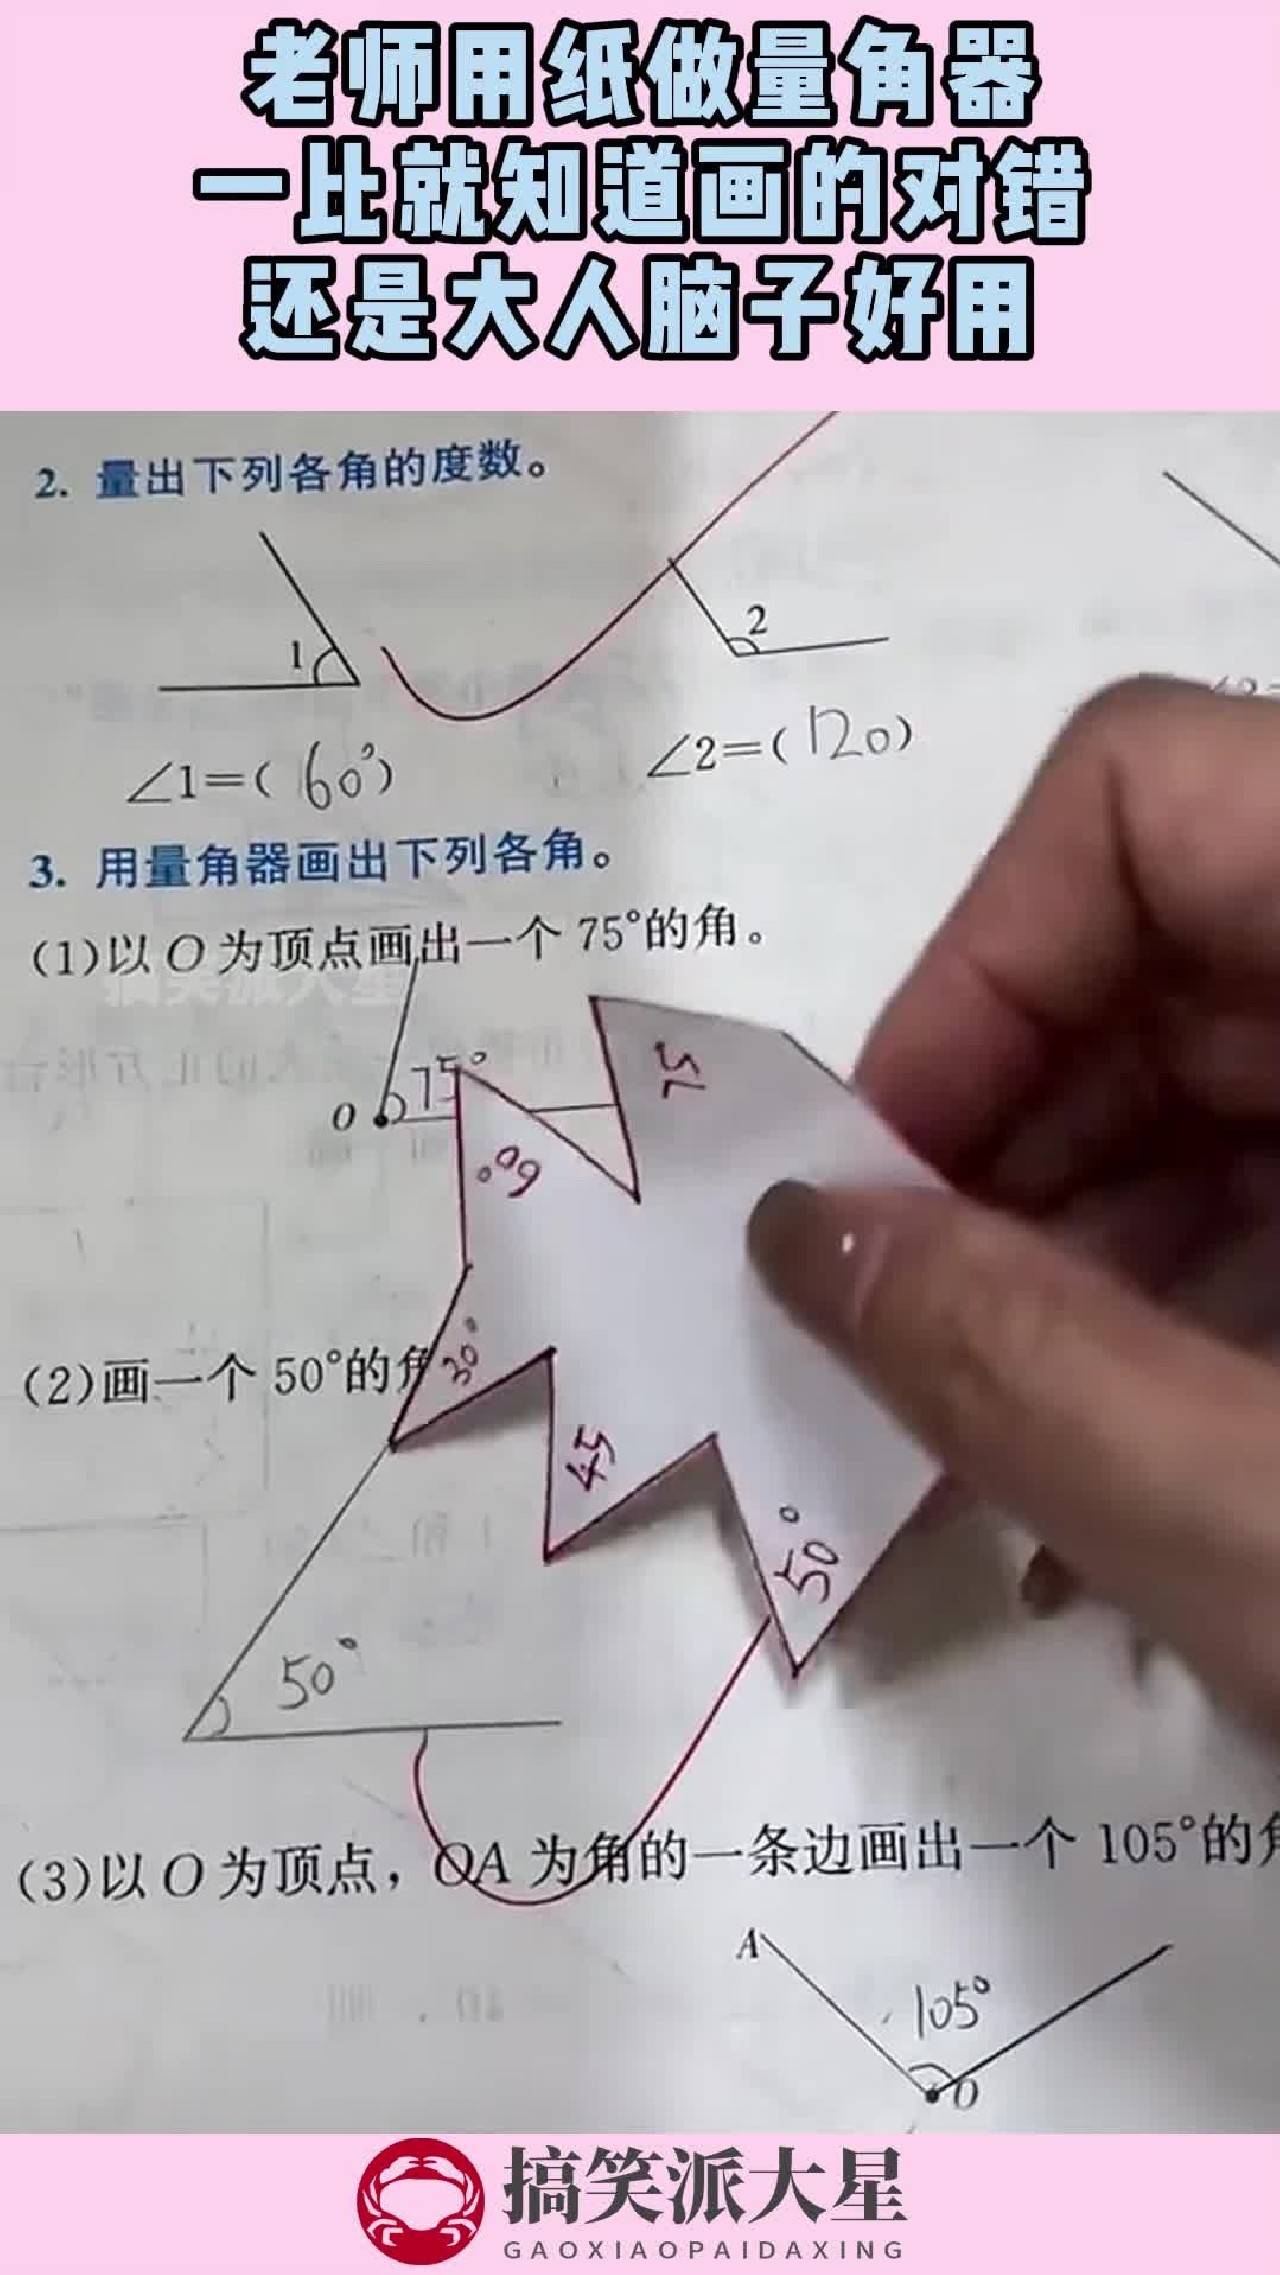 老师用纸做量角器
一比就知道画的对错
还是大人脑子好用
2. 量出下列各角的度数。
1
2
∠1=(60°)
∠2=(120)
3. 用量角器画出下列各角。
(1)以 O 为顶点画出一个 75°的角。
搞笑派大星
75
O
75°
60°
(2)画一个 50°的角
30°
45
50°
50°
(3)以 O 为顶点，OA 为角的一条边画出一个 105°的角
A
105°
O
搞笑派大星
GAOXIAOPAIDAXING